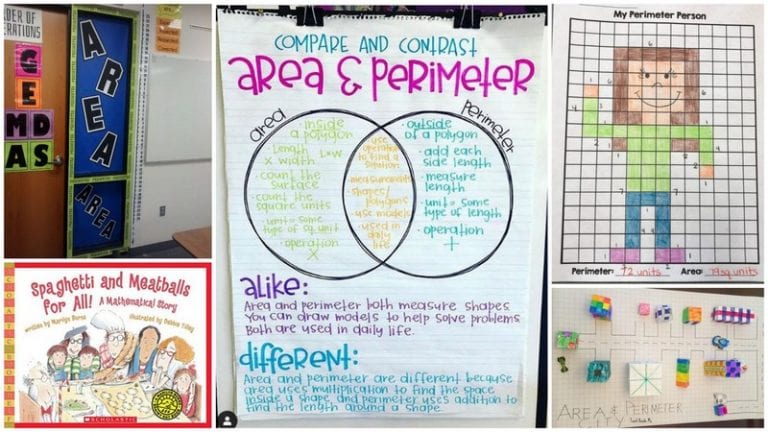 ORDER OF
OPERATIONS
G
E
MD
AS
AREA
AREA
Spaghetti and Meatballs
for All! A Mathematical Story
written by Marilyn Burns
illustrated by Debbie Tilley
SCHOLASTIC
COMPARE AND CONTRAST
AREA & PERIMETER
area
Perimeter
· inside
a polygon
· Length L×W
× width
· count the
surface
· count the
square units
· unit = some
type of sq. unit
· operation
×
· use
operation
to find a
solution
· measurements
· shapes/
polygons
· use models
· used in
daily
life
· outside
of a polygon
· add each
side length
· measure
length
· unit = some
type of length
· operation
+
alike:
Area and perimeter both measure shapes.
You can draw models to help solve problems.
Both are used in daily life.
different:
Area and perimeter are different because
area uses multiplication to find the space
inside a shape and perimeter uses addition to
find the length around a shape.
My Perimeter Person
Perimeter: 72 units Area: 79 sq. units
AREA & PERIMETER
CITY